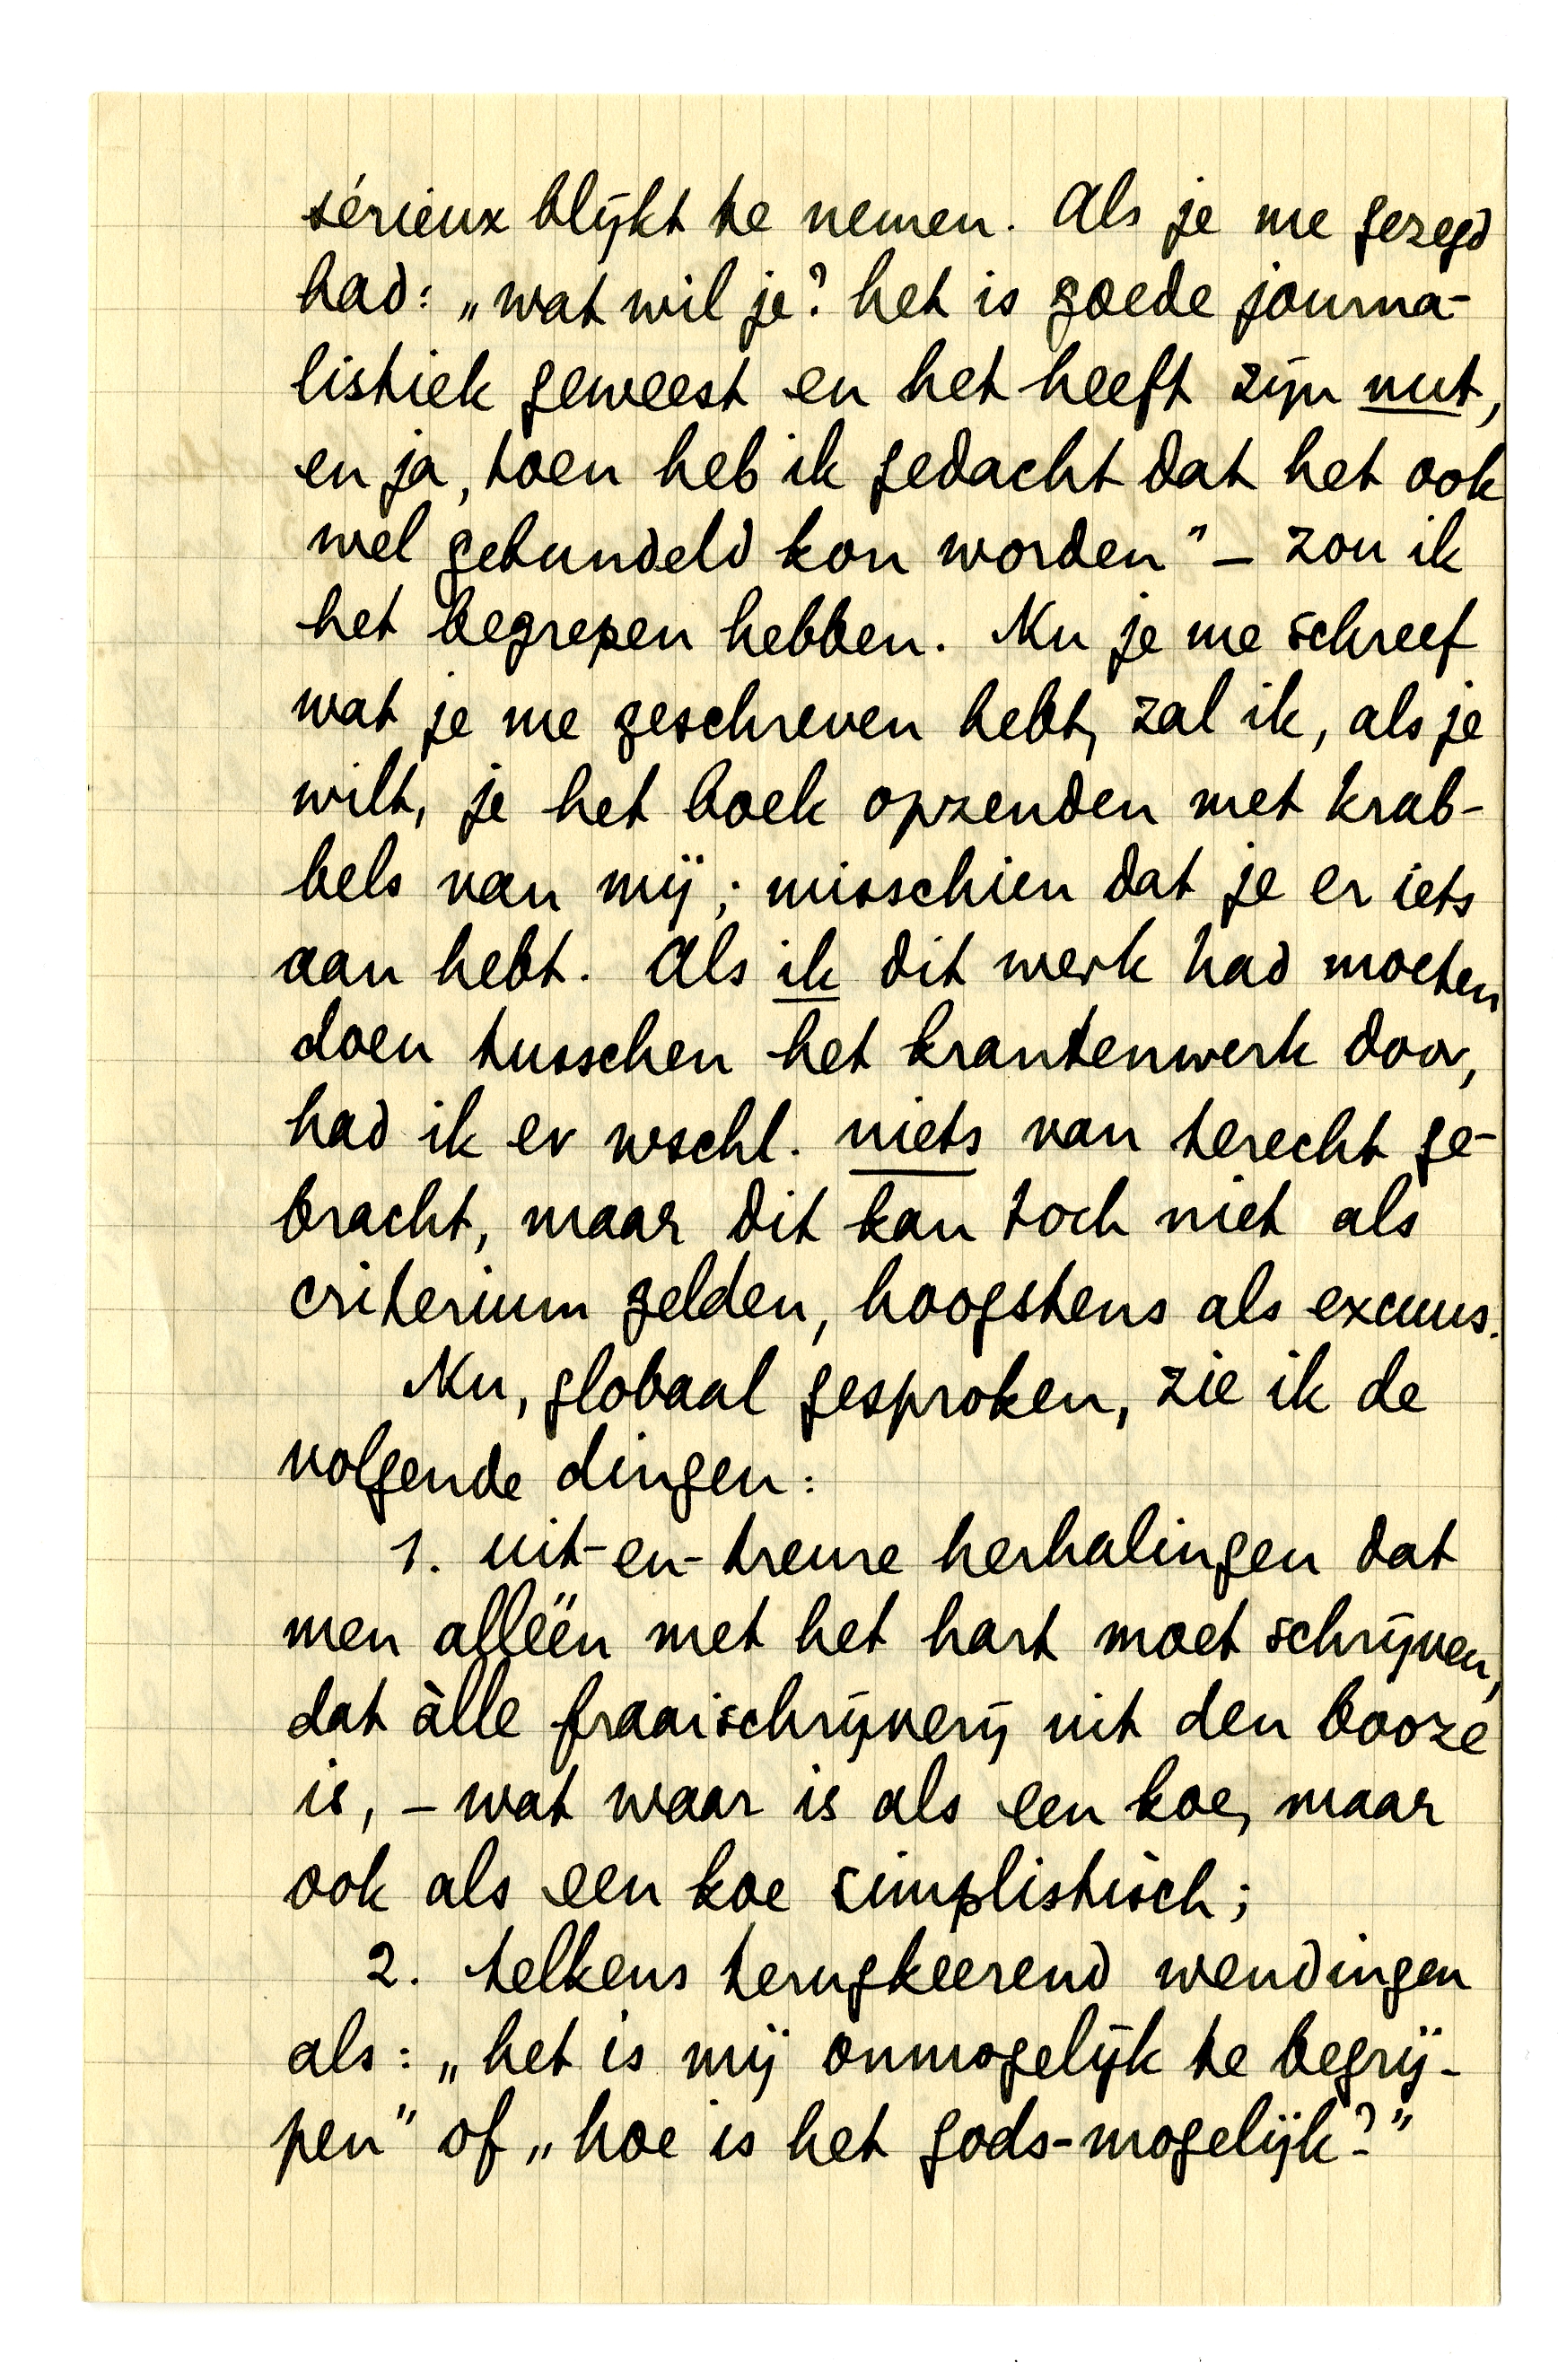 sérieux blijkt te nemen. Als je me gezegd
had: „wat wil je? het is goede journa-
listiek geweest en het heeft zijn nut,
en ja, toen heb ik gedacht dat het ook
wel gebundeld kon worden” – zou ik
het begrepen hebben. Nu je me schreef
wat je me geschreven hebt, zal ik, als je
wilt, je het boek opzenden met krab-
bels van mij; misschien dat je er iets
aan hebt. Als ik dit werk had moeten
doen tusschen het krantenwerk door,
had ik er wschl. niets van terecht ge-
bracht, maar dit kan toch niet als
criterium gelden, hoogstens als excuus.
Nu, globaal gesproken, zie ik de
volgende dingen:
1. uit-en-treure herhalingen dat
men alléén met het hart moet schrijven,
dat àlle fraaischrijverij uit den booze
is, – wat waar is als een koe, maar
ook als een koe simplistisch;
2. telkens terugkeerend wendingen
als: „het is mij onmogelijk te begrij-
pen” of „hoe is het gods-mogelijk?”